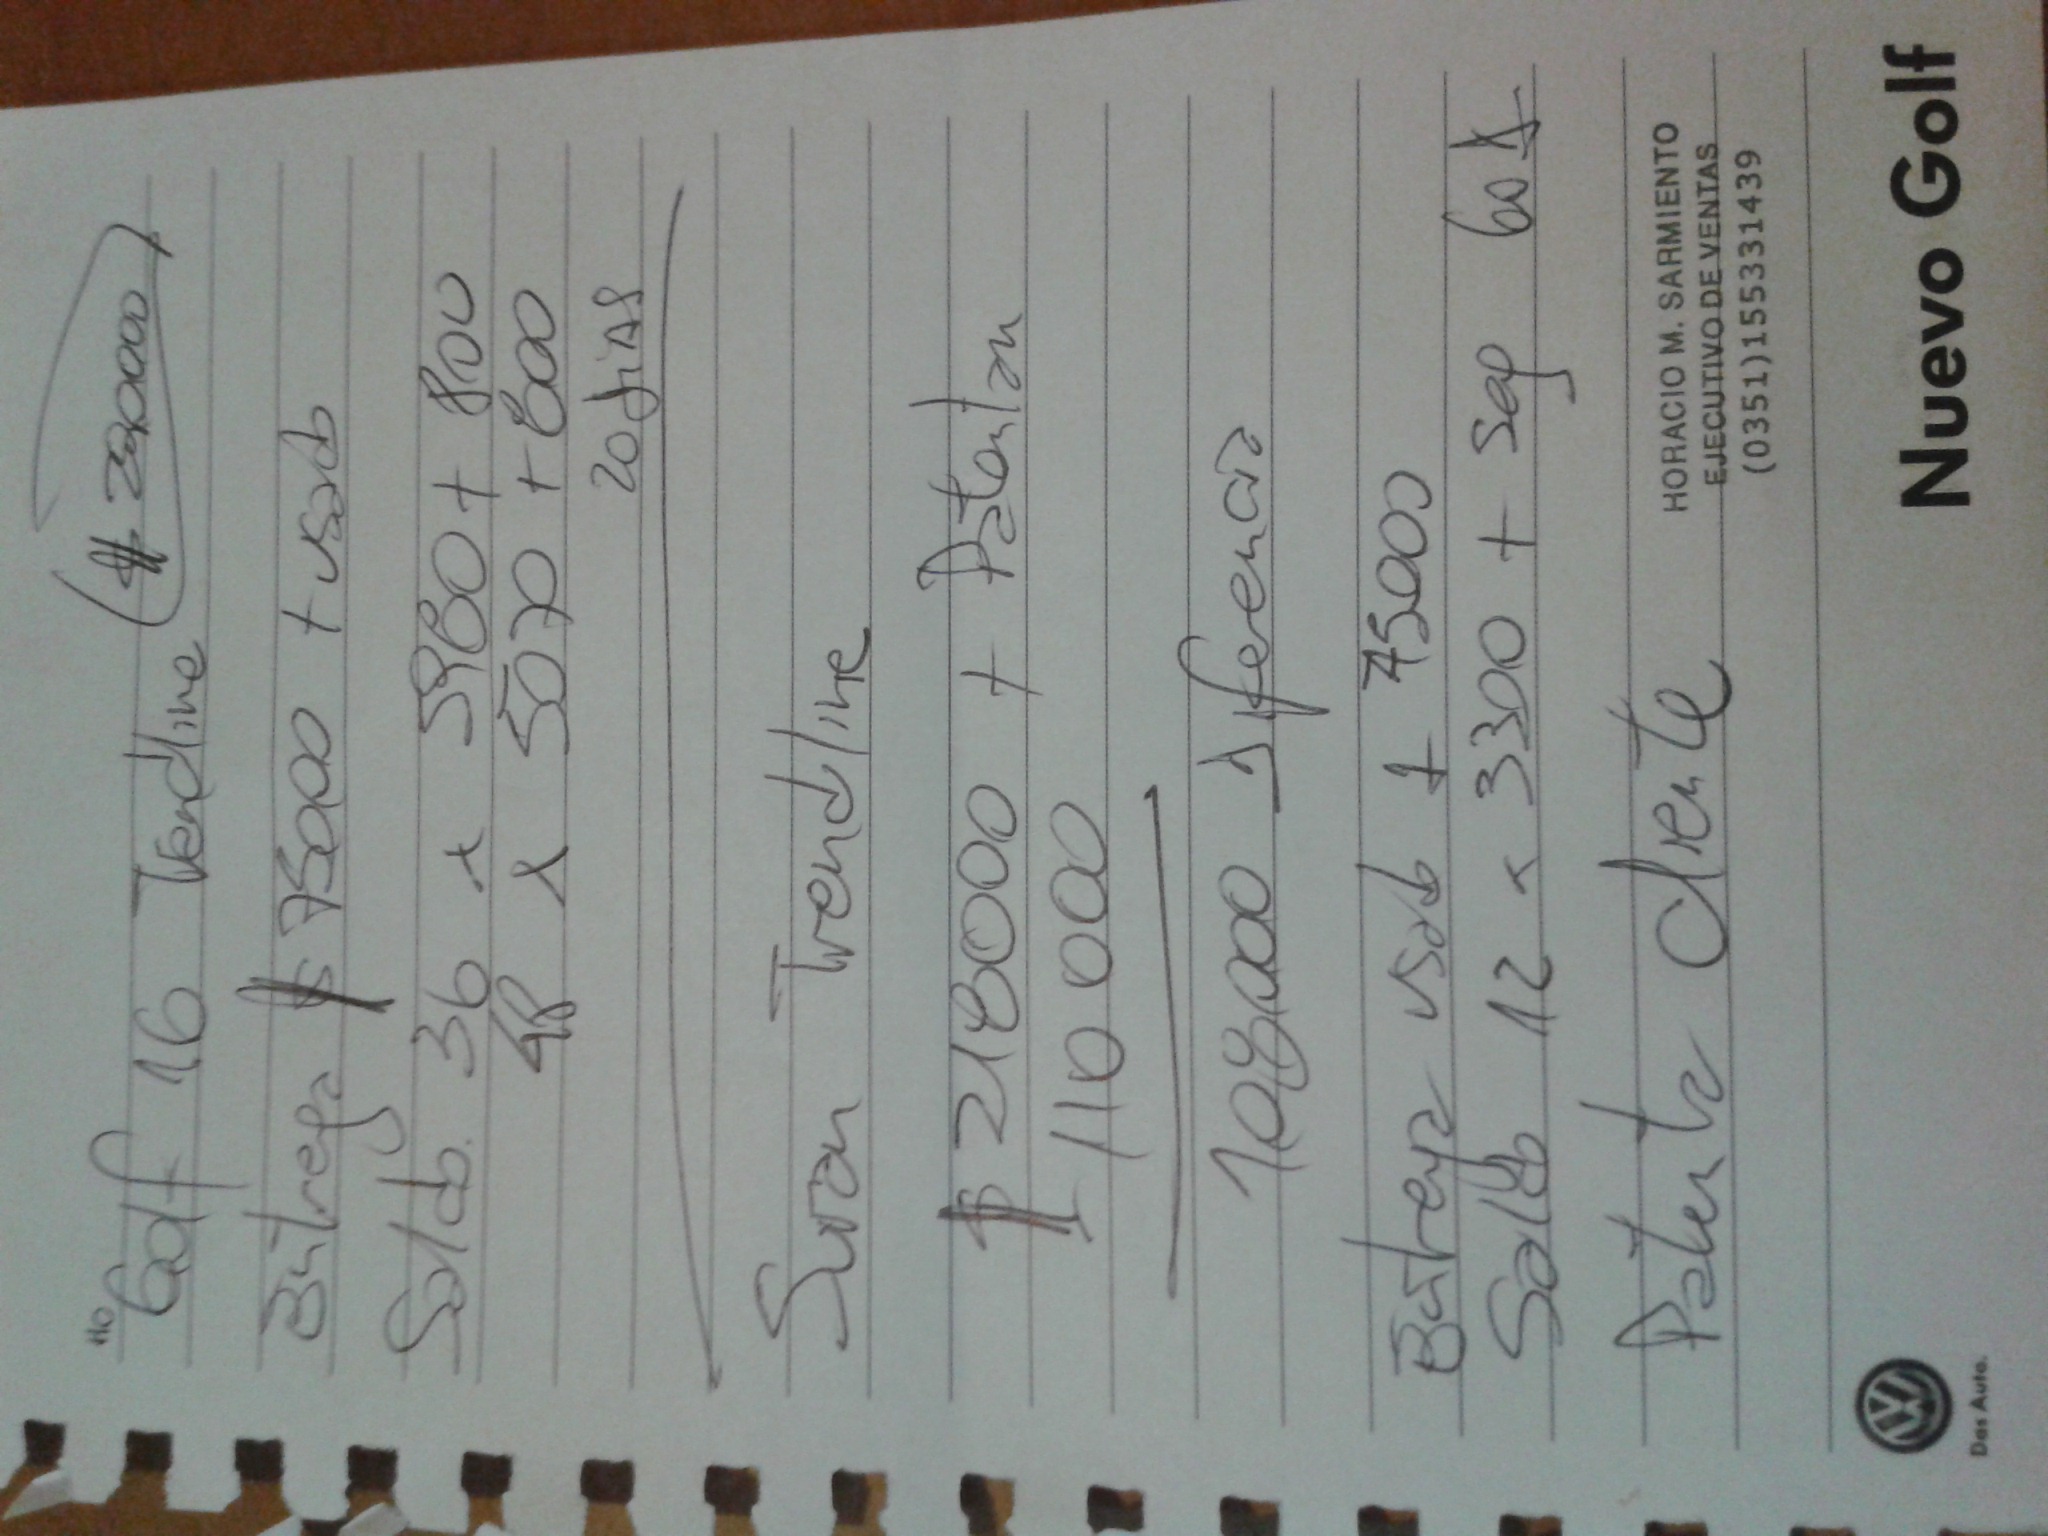 Golf 16 Trendline ($ 250000)
Entrega $ 75000 + usado
Saldo. 36 x 5980 + 800
48 x 5070 + 600
20 dias
Suran Trendline
$ 218000 + Patentan
- 110 000
108000 Diferencia
Entrega usado + 75000
Saldo 12 x 3300 + seg 600
Patenta cliente
HORACIO M. SARMIENTO
EJECUTIVO DE VENTAS
(0351)155331439
Das Auto.
Nuevo Golf